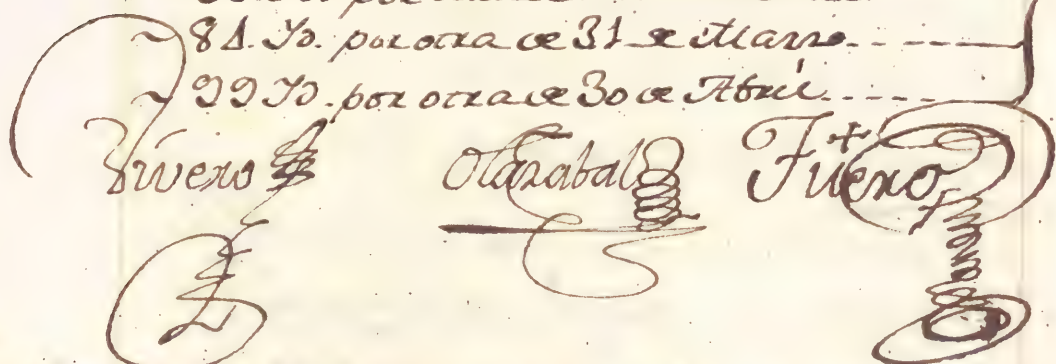 ~ 81. Yd. por otra de 31 de Marzo
~ 99 Yd. por otra de 30 de Abril
Vivero Olazabal Fuero